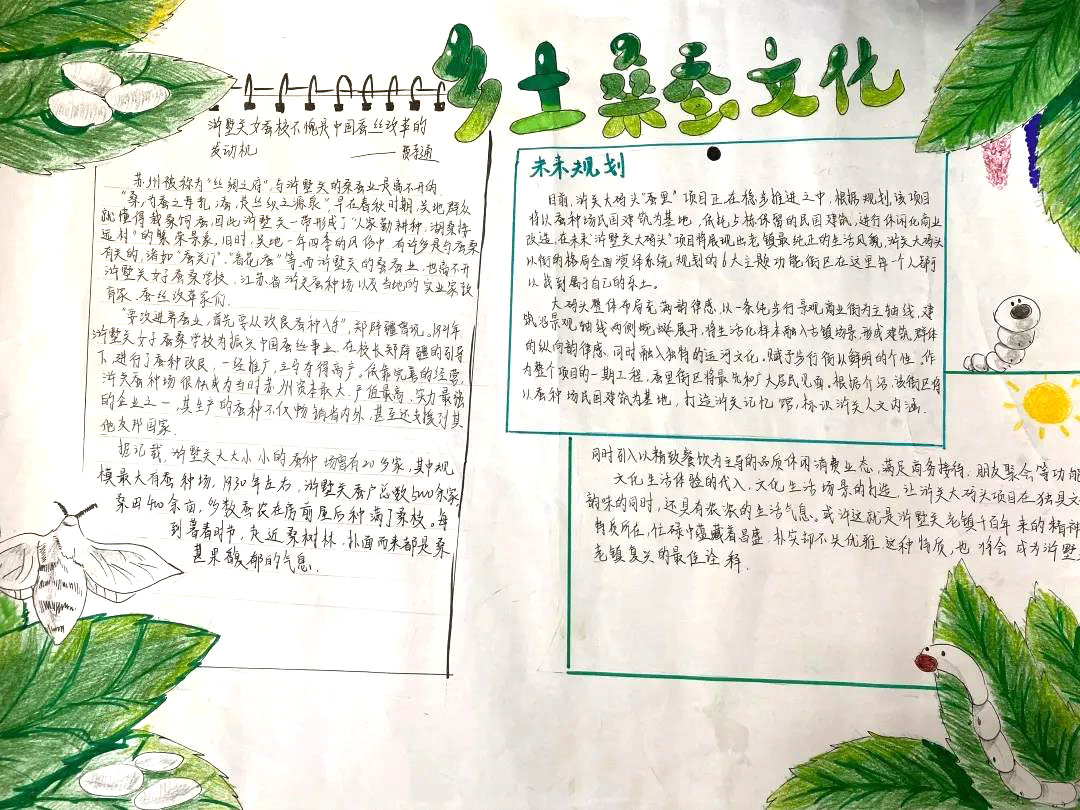 乡土桑蚕文化
浒墅关女蚕校不愧是中国蚕丝改革的
发动机 ——费孝通
苏州被称为“丝绸之府”,与浒墅关的桑蚕业是离不开的
“桑,为蚕之母乳;蚕,是丝纹之源泉”早在春秋时期,吴地群众
就懂得栽桑饲蚕,因此浒墅关一带形成了“人家勤耕种,湖桑接
远村”的繁荣景象,旧时,吴地一年四季的风俗中,有许多是与蚕桑
有关的,诸如“蚕关门”、“看花蚕”等,而浒墅关的蚕桑业,也离不开
浒墅关女子蚕桑学校、江苏省浒关蚕种场以及当地的实业家教
育家、蚕丝改革家们.
“要改进养蚕业,首先要从改良蚕种入手”,郑辟疆曾说。1924年,
浒墅关女子蚕桑学校为振兴中国蚕丝事业,在校长郑辟疆的引导
下,进行了蚕种改良,一经推广,立马夺得高产。依靠完善的经营,
浒关蚕种场很快成为当时苏州资本最大、产值最高、实力最强
的企业之一,其生产的蚕种不仅畅销省内外,甚至还支援到其
他友邦国家.
据记载,浒墅关大大小小的蚕种场曾有20多家,其中规
模最大有蚕种场,1930年左右,浒墅关蚕户总数5000余家,
桑田400余亩,多数蚕农在房前屋后种满了桑枝。每
到暮春时节,走近桑树林,扑面而来都是桑
葚果馥郁的气息.
未来规划
目前,浒关大码头“蚕里”项目正在稳步推进之中,根据规划,该项目
将以蚕种场民国建筑为基地,依托占栋保留的民国建筑,进行休闲化商业
改造,在未来“浒墅关大码头”项目将展现出老镇最纯正的生活风貌,浒关大码头
以街的格局全面演绎系统规划的6大主题功能街区在这里每一个人都可
以找到属于自己的乐土.
大码头整体布局充满韵律感,以一条纯步行景观商业街为主轴线,建
筑沿景观轴线两侧蜿蜒展开,将生活化样本融入古镇场景,形成建筑群体
的纵向韵律感,同时融入独特的运河文化.赋予步行街以鲜明的个性,作
为整个项目的一期工程,蚕里街区将最先和广大居民见面.根据介绍,该街区将
以蚕种场民国建筑为基地,打造浒关记忆馆,标识浒关人文内涵.
同时引入以精致餐饮为主导的品质休闲消费业态,满足商务接待,朋友聚会等功能
文化生活体验的代入,文化生活场景的打造,让浒关大码头项目在独具文
韵味的同时,还具有浓浓的生活气息。或许这就是浒墅关老镇千百年来的精神
特质所在,忙碌中蕴藏着昌盛,朴实却不失优雅,这种特质,也将会成为浒墅
老镇复兴的最佳诠释.